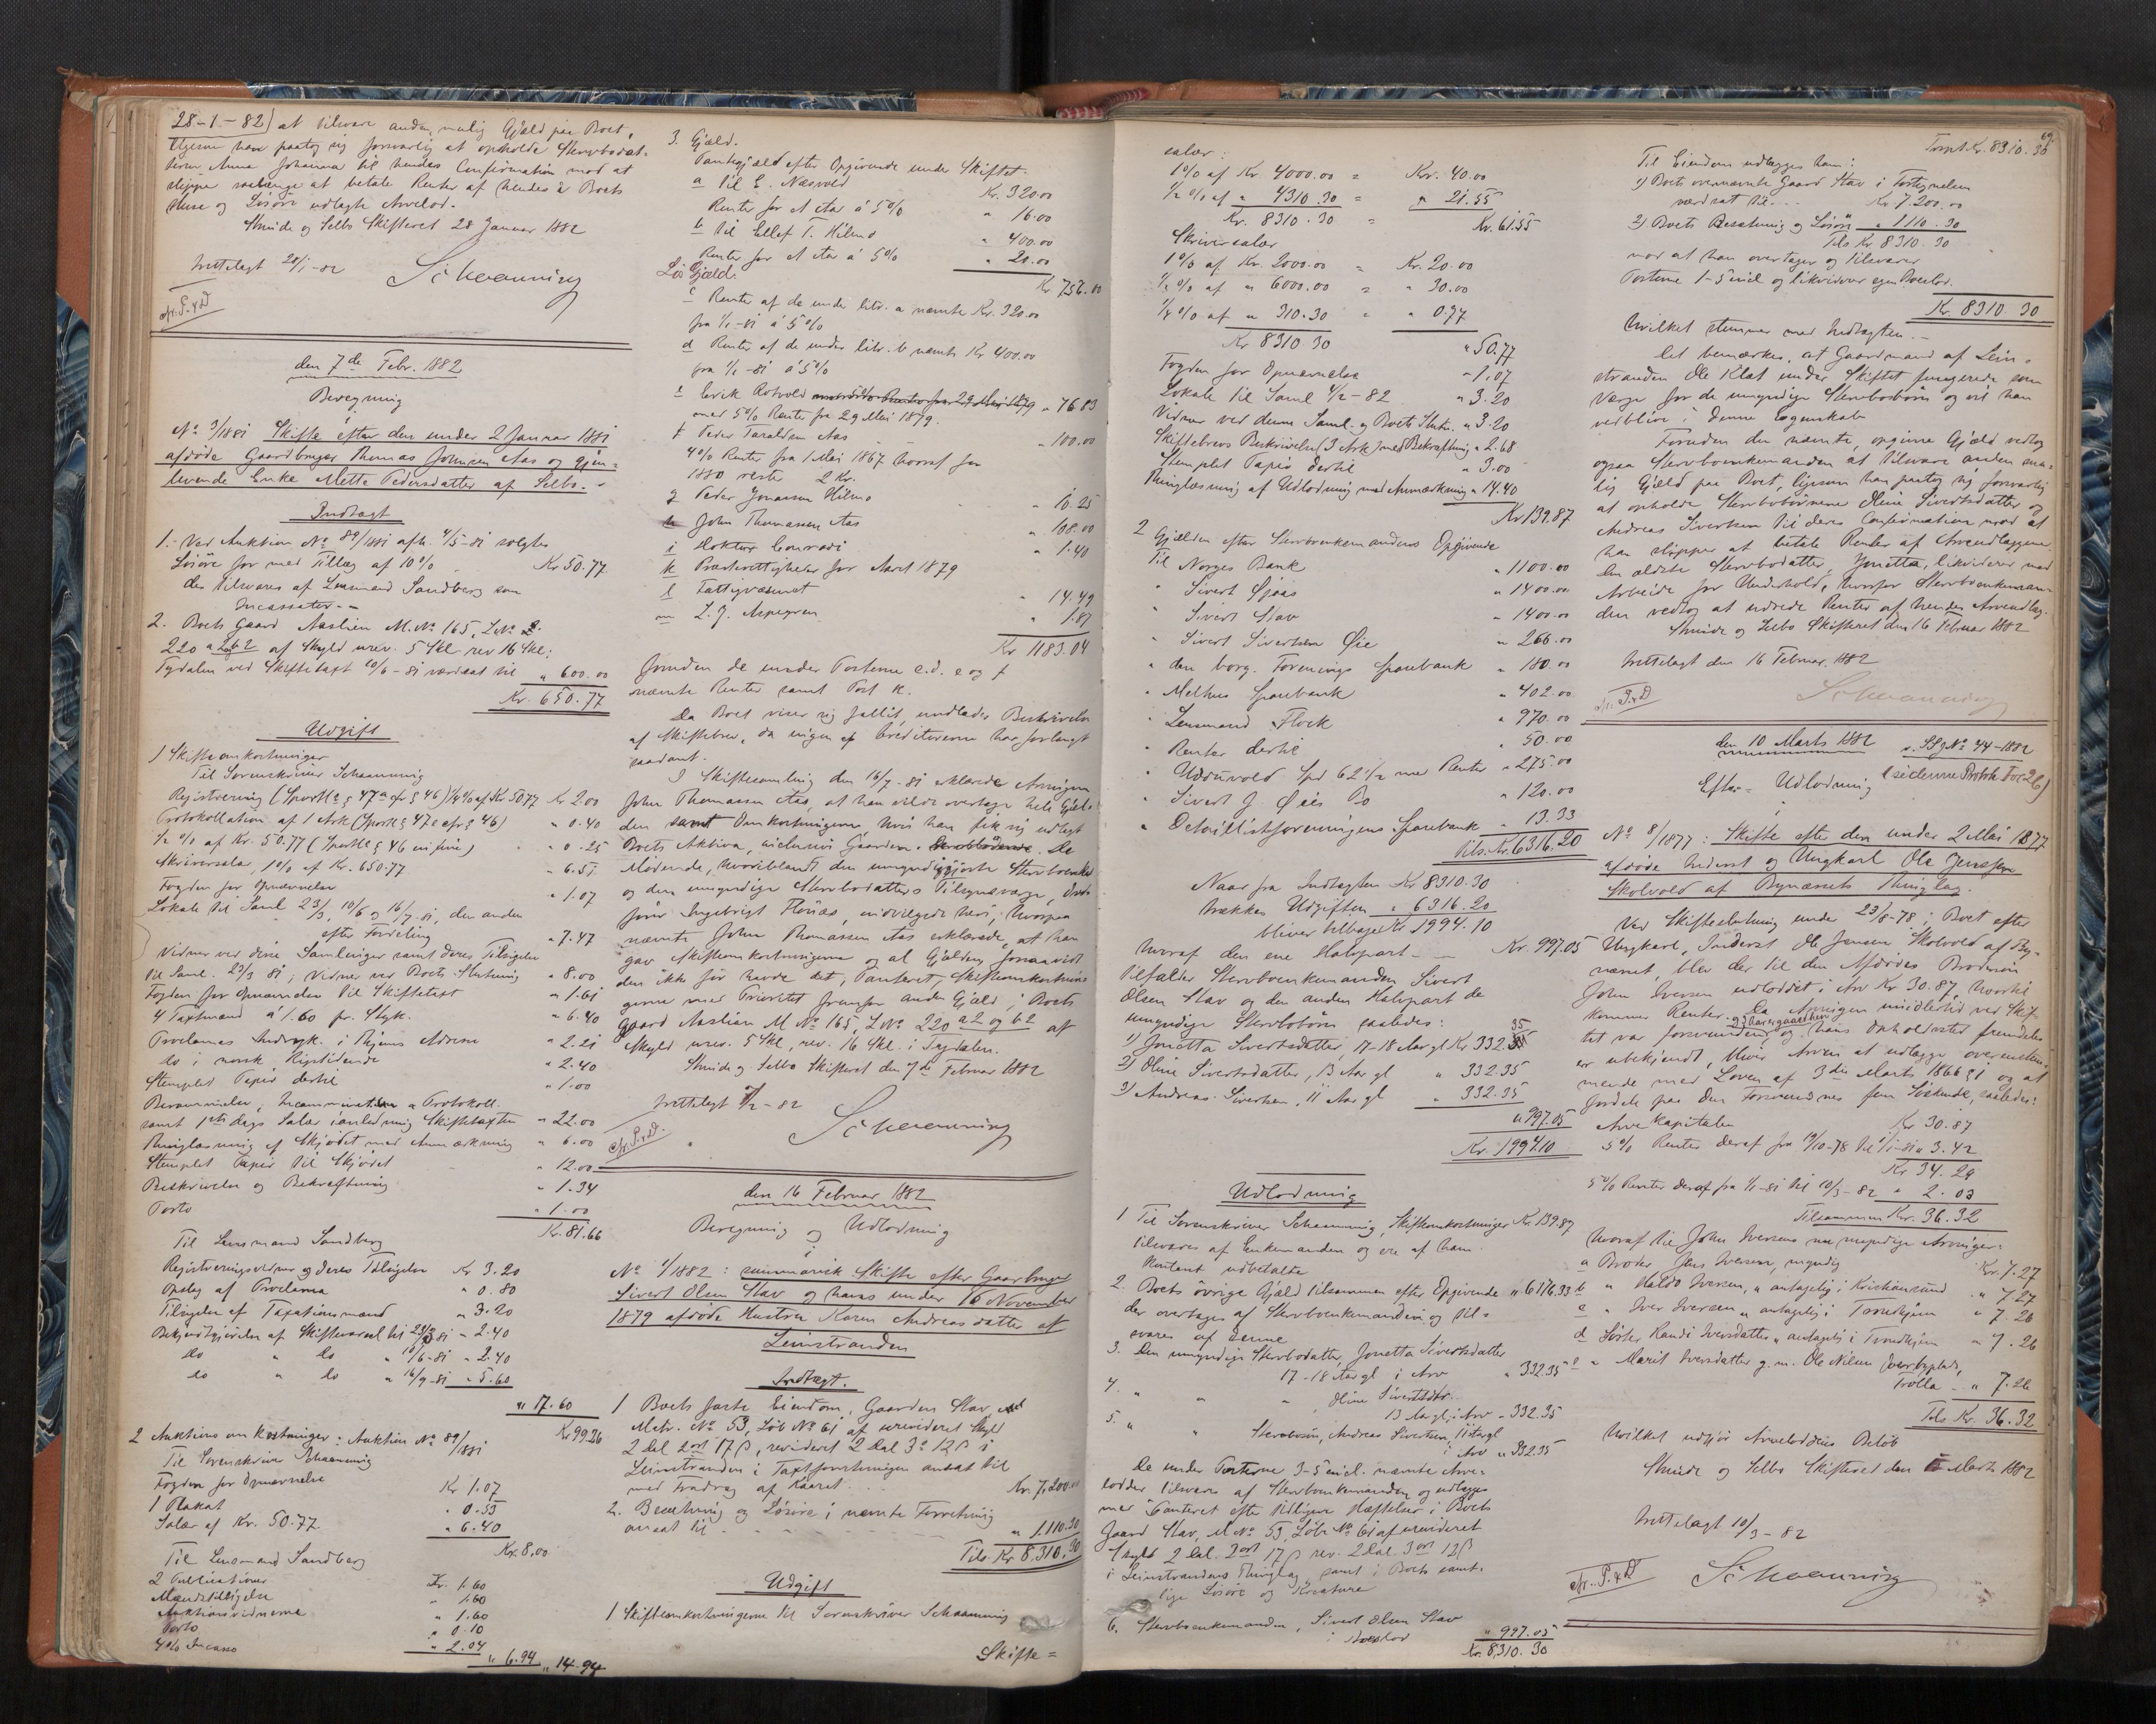 28-1-82) at tilsvare anden mulig Gjæld paa Boet,
ligesom han paatog sig forsvarlig at opholde Stervbodat-
teren Anna Johanna til hendes Confirmation mod at
slippe saalænge at betale Renter af hendes i Boets
Huse og Løsøre udlagte Arvelod.
Strinde og Selbo Skifteret 28 Januar 1882
Irettelagt 28/1-82 Schaanning
den 7de Febr. 1882
Beregning
i
No 3/1881 Skifte efter den under 2 Januar 1881
afdøde Gaardbruger Thomas Johnsen Aas og gjen-
levende Enke Mette Pedersdatter af Selbo.
Indtægt
1. Ved Auktion No 89/1881 afh. 4/5-81 solgtes
Løsøre for med Tillæg af 10% Kr 50.77
der tilsvares af Lensmand Sandberg som
Incassator.
2. Boets Gaard Aaslien M. No 165, L No
220 a2 b2 af Skyld urev. 5 Skl rev 16 Skl:
Tydalen ved Skiftetaxt 10/6-81 værdsat til " 600.00
Kr. 650.77
Udgift
1 Skifteomkostninger
Til Sorenskriver Schaanning
Registrering (Sportl. § 47a cfr § 46) 1/4 % af Kr 50.77 Kr 2.00
Protokollation af 1 Ark (Sportl § 47c cfr § 46) " 0.40
1/2 % af Kr. 50.77 (Sportl § 46 in fine) " 0.25
Skriversalær, 1% af Kr. 650.77 " 6.51
Fogden for Opnævnelse " 1.07
Lokale til Saml 23/3, 10/6 og 16/7-81, den anden
efter Fordeling " 7.47
Vidner ved disse Samlinger samt deres Tilsigelse
til Saml. 23/3 81, Vidner ved Boets Slutning " 8.00
Fogden for Opnævnelse til Skiftetaxt " 1.61
4 Taxtmænd á 1.60 pr. Styk. " 6.40
Proclamas Indryk. i Thjems Adresse " 2.21
do i norsk Rigstidende " 2.40
Stemplet Papir dertil " 1.00
Berammelse, Incamination & Protokoll.
samt 1ste dags Salær i anledning Skiftetaxten " 22.00
Thinglæsning af Skjødet med Anmærkning " 6.00
Stemplet Papir til Skjødet " 12.00
Beskrivelse og Bekræftning " 1.34
Porto " 1.00
Kr. 81.66
Til Lensmand Sandberg
Registreringsvidner og deres Tilsigelse Kr 3.20
Opslag af Proclama " 0.80
Tilsigelse af Taxationsmænd " 3.20
Bekjendtgjørelse af Skiftevarsel til 23/3 81 " 2.40
do " do " 10/6-81 " 2.40
do " do " 16/7-81 " 5.60
" 17.60
Kr 99.26
2 Auktions omkostninger: Auktion No 89/1881
Til Sorenskriver Schaanning
Fogden for Opnævnelse Kr 1.07
1 Plakat " 0.53
Salær af Kr. 50.77 " 6.40
Kr. 8.00
Til Lensmand Sandberg
2 Publicationer Kr. 1.60
Mændstilsigelse " 1.60
Auktionsvidnerne " 1.60
Porto " 0.10
4% Incasso " 2.04
" 6.94 " 14.94
3. Gjæld.
Pantegjæld efter Opgivende under Skiftet.
a til E. Næsvold Kr. 320.00
Renter for et Aar á 5% " 16.00
b til Ellef T. Hilmo " 400.00
Renter for et Aar á 5% " 20.00
Kr. 756.00
Løs Gjæld.
c Renter af de under litr. a nævnte Kr. 320.00
fra 1/1-81 á 5%
d Renter af de under litr. b nævnte Kr 400.00
fra 1/1-81 á 5%
e Erik Rotvold " 76.83
med 5% Renter fra 29 Mai 1879.
f Peder Taraldsen Aas " 100.00
4% Renter fra 1 Mai 1867 hvoraf for
1880 reste 2 Kr.
g Peder Jonassen Hilmo " 16.25
h John Thomassen Aas " 108.00
i Doktor Conradi " 1.40
k Præsterettigheder for Aaret 1879
l Fattigvæsenet " 14.49
m L. J. Aspegren " 1.87
Kr 1183.04
foruden de under Posterne c. d. e og f
nævnte Renter samt Post k.
Da Boet viser sig fallit, undlades Beskrivelse
af Skiftebrev, da ingen af Creditorerne har forlangt
saadant.
I Skiftesamling den 16/7-81 erklærede Arvingen
John Thomassen Aas, at han vilde overtage hele Gjæl-
den samt Omkostningerne hvis han fik sig udlagt
Boets Aktiva, inclusive Gaarden. De
Mødende, hvoriblandt den umyndiggjorte Stervboenke
og den umyndige Stervbodatters Tilsynsværge,
Ingebrigt Florås, indvilgede heri, hvorpaa
nævnte John Thomassen Aas erklærede, at han
gav Skifteomkostningerne og al Gjælden, forsaavidt
den ikke før havde det, Panteret, Skifteomkostnin-
gerne med Prioritet fremfor anden Gjæld, i Boets
Gaard Aaslien M No 165, L No 220 a2 og b2 af
Skyld urev. 5 Skl, rev. 16 Skl. i Tydalen.
Strinde og Selbo Skifteret den 7de Februar 1882
Irettelagt 7/2-82
Schaanning
den 16 Februar 1882
Beregning og Udlodning
i
No 1/1882: summarisk Skifte efter Gaardbruger
Sivert Olsen Stav og hans under 16 November
1879 afdøde Hustru Karen Andreasdatter af
Leinstranden
Indtægt.
1 Boets faste Eiendom, Gaarden Stav
Matr. No 53, Løb No 61 af urevideret Skyld
2 Dal 2 ort 17 β, revideret 2 Dal 3 o 12 β i
Leinstranden i Taxtforretningen ansat til
med Fradrag af Kaaret Kr. 7,200.00
2. Besætning og Løsøre i nævnte Forretning
ansat til " 1,110.30
Tils. Kr 8,310.30
Udgift
1 Skifteomkostningerne til Sorenskriver Schaanning
Skifte=
salær:
1% af Kr 4000.00 = Kr. 40.00
1/2 % af " 4310.30 = " 21.55
Kr. 8310.30 = Kr. 61.55
Skriversalær
1% af Kr. 2000.00 = Kr. 20.00
1/2 % af " 6000.00 = " 30.00
1/4 % af " 310.30 = " 0.77
Kr 8310.30 " 50.77
Fogden for Opnævnelse " 1.07
Lokale til Saml 4/2-82 " 3.20
Vidner ved denne Saml. og Boets Slutn. " 3.20
Skiftebrevs Beskrivelse (3 Ark) med Bekræftning " 2.68
Stemplet Papir dertil " 3.00
Thinglæsning af Udlodning med Anmærkning " 14.40
Kr 139.87
2 Gjælden efter Stervboenkemandens Opgivende
Til Norges Bank " 1100.00
" Sivert Sjøås " 1400.00
" Sivert Stav " 1400.00
" Sivert Sivertsen Øie " 266.00
" den borg. Forenings Sparebank " 180.00
" Melhus Sparebank " 402.00
" Lensmand Flock " 970.00
" Renter dertil " 50.00
" Uduvold Spd 62 1/2 med Renter " 275.00
" Sivert J. Øies Bo " 120.00
" Detaillistforeningens Sparebank " 13.33
Tils. Kr. 6316.20
Naar fra Indtægten Kr 8310.30
trækkes Udgiften " 6316.20
bliver tilbage Kr 1994.10
hvoraf den ene Halvpart Kr. 997.05
tilfalder Stervboenkemanden Sivert
Olsen Stav og den anden Halvpart de
umyndige Stervbobørn saaledes:
1) Jonetta Sivertsdatter, 17-18 Aar gl Kr 332.35
2) Oline Sivertsdatter, 13 Aar gl " 332.35
3) Andreas Sivertsen, 11 Aar gl " 332.35
" 997.05
Kr. 1994.10
Udlodning
1 Til Sorenskriver Schaanning, Skifteomkostninger Kr 139.87
tilsvares af Enkemanden og ere af ham
kontant udbetalte
2. Boets øvrige Gjæld tilsammen efter Opgivende " 6176.33
der overtages af Stervboenkemanden og til-
svares af denne
3. Den umyndige Stervbodatter, Jonetta Sivertsdatter
17-18 Aar gl i Arv " 332.35
4. " " Oline Sivertsdtr.
13 Aar gl, i Arv " 332.35
5. " " Stervbosøn, Andreas Sivertsen, 11 Aar gl
i Arv " 332.35
De under Posterne 3-5 incl. nævnte Arve-
lodder tilsvares af Stervboenkemanden og udlægges
med Panteret efter tidligere Hæftelser i Boets
Gaard Stav, M No 53, Løb No 61 af urevideret
Skyld 2 Dal. 2 ort 17 β rev. 2 Dal. 3 ort 12 β
i Leinstrandens Thinglag samt i Boets samt-
lige Løsøre og Kreature
6. Stervboenkemanden, Sivert Olsen Stav
i Boeslod " 997.05
Kr. 8310.30
69
Transp. Kr. 8310.30
Til Eiendom udlægges ham:
1) Boets ovennævnte Gaard Stav i Fortegnelsen
værdsat til Kr 7200.00
2) Boets Besætning og Løsøre " 1110.30
Tils Kr 8310.30
mod at han overtager og tilsvarer
Posterne 1-5 incl og likviderer egen Boeslod.
Kr. 8310.30
hvilket stemmer med Indtægten.
Det bemærkes, at Gaardmand af Lein-
stranden Ole Klet under Skiftet fungerede som
Værge for de umyndige Stervbobørn og vil han
vedblive i denne Egenskab
Foruden den nævnte, opgivne Gjæld vedtog
ogsaa Stervboenkemanden at tilsvare anden mu-
lig Gjæld paa Boet, ligesom han paatog sig forsvarlig
at opholde Stervbobørnene Oline Sivertsdatter og
Andreas Sivertsen til deres Confirmation mod at
han slipper at betale Renter af Arveudlæggene.
Den ældste Stervbodatter, Jonetta, likviderer med
Arbeide for Underhold, hvorfor Stervboenkeman-
den vedtog at udrede Renter af hendes Arveudlæg.
Strinde og Selbo Skifteret den 16 Februar 1882
Irettelagt den 16 Februar 1882
Schaanning
den 10 Marts 1882 No 44-1882
Efter-Udlodning (se denne Protok Fol 26)
i
No 8/1877: Skifte efter den under 2 Mai 1877
afdøde Inderst og Ungkarl Ole Jenssen
Skolvold af Bynæsets Thinglag.
Ved Skifteslutning under 23/8-78 i Boet efter
Ungkarl, Inderst Ole Jensen Skolvold af By-
næset, blev der til den Afdødes Brodersøn
John Iversen udloddet i Arv Kr 30.87, hvortil
kommer Renter. Da Arvingen imidlertid ved Skif-
tet var forsvunden, og hans Opholdssted fremdeles
er ubekjendt, bliver Arven at udlægge overensstem-
mende med Loven af 3die Marts 1866 § 1 og at
fordele paa den Forsvundnes fem Søskende, saaledes:
Arvekapitalen Kr 30.87
5% Renter deraf fra 19/10-78 til 1/1-81 " 3.42
Kr 34.29
5% Renter deraf fra 1/1-81 til 10/3-82 " 2.03
Tilsammen Kr. 36.32
hvoraf til John Iversens Arvinger:
a Broder Jens Iversen, myndig Kr. 7.27
b " Haldo Iversen, " antagelig i Kristiansund " 7.27
c " Iver Iversen " antagelig i Trondhjem " 7.26
d Søster Randi Iversdatter " antagelig i Trondhjem " 7.26
e " Marit Iversdatter g. m. Ole Nilsen
Trolla " 7.26
Tils Kr. 36.32
hvilket udgjør Arveloddens Beløb
Strinde og Selbo Skifteret den Marts 1882
Irettelagt 10/3-82
Schaanning